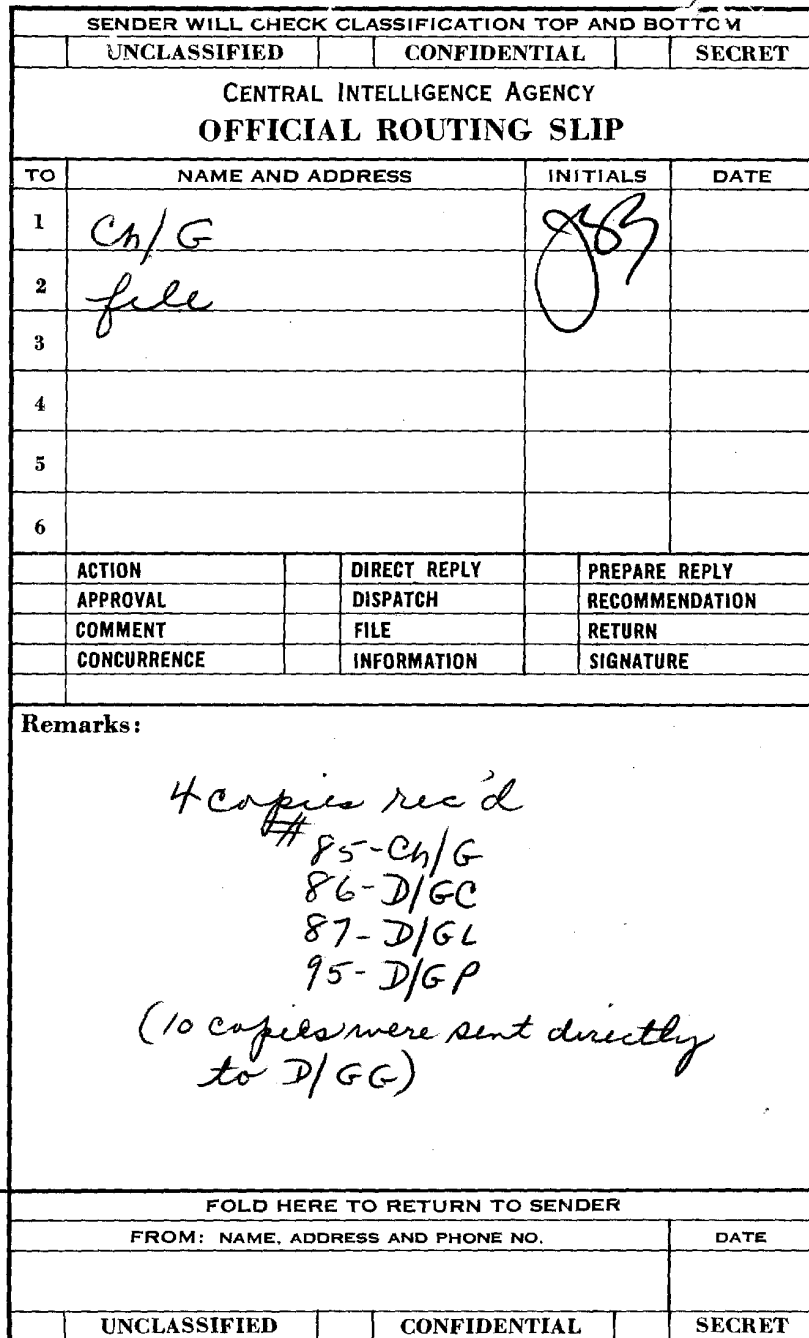 SENDER WILL CHECK CLASSIFICATION TOP AND BOTTOM
UNCLASSIFIED CONFIDENTIAL SECRET
CENTRAL INTELLIGENCE AGENCY
OFFICIAL ROUTING SLIP
TO NAME AND ADDRESS INITIALS DATE
1 Ch/G
2 file
3
4
5
6
ACTION DIRECT REPLY PREPARE REPLY
APPROVAL DISPATCH RECOMMENDATION
COMMENT FILE RETURN
CONCURRENCE INFORMATION SIGNATURE
Remarks:
4 copies rec'd
# 85-Ch/G
86-D/GC
87-D/GL
95-D/GP
(10 copies were sent directly
to D/GG)
FOLD HERE TO RETURN TO SENDER
FROM: NAME, ADDRESS AND PHONE NO. DATE
UNCLASSIFIED CONFIDENTIAL SECRET